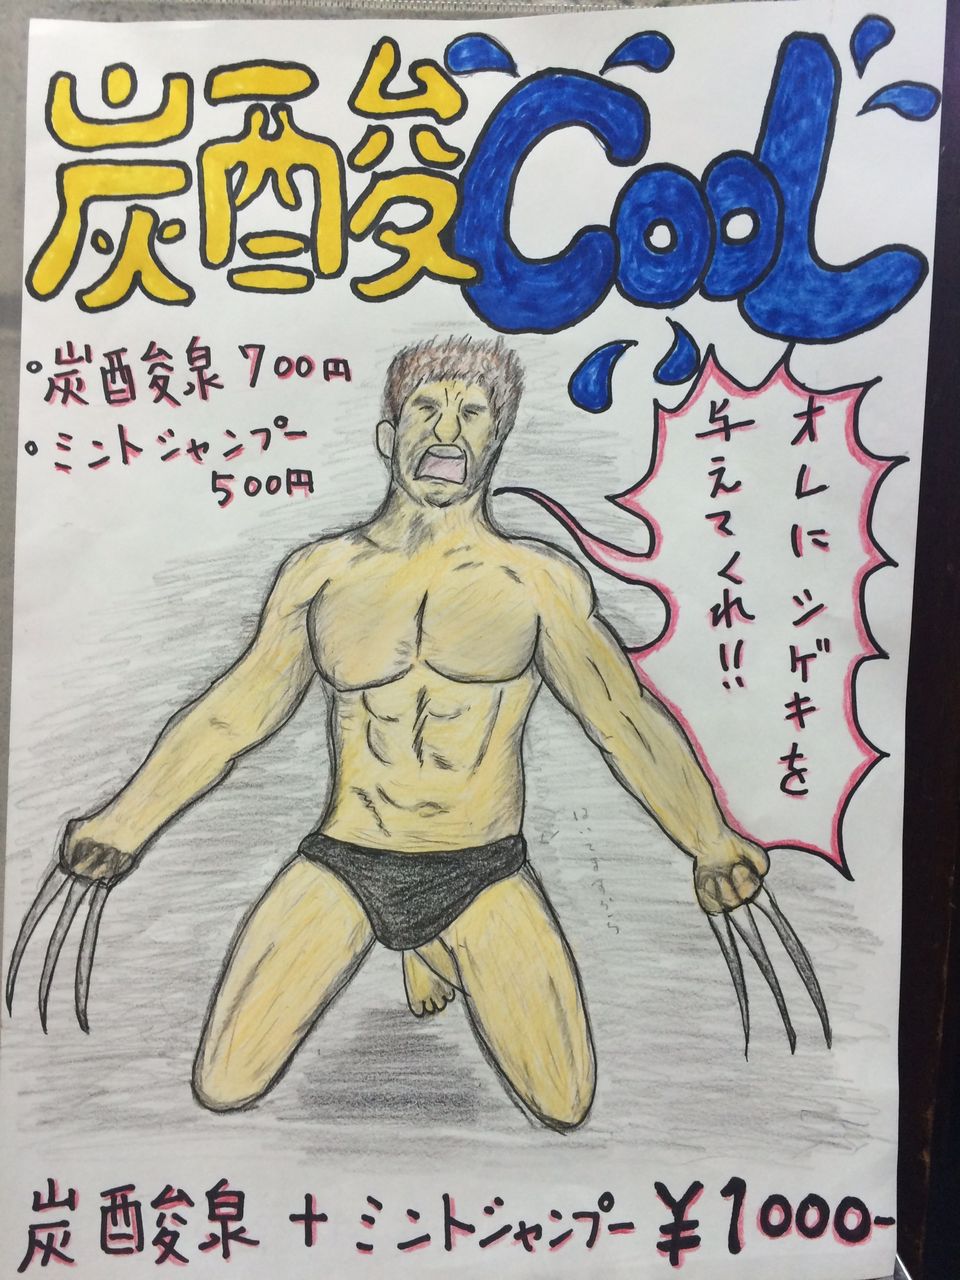 炭酸Cool
・炭酸泉 700円
・ミントジャンプー
500円
オレにシゲキを
与えてくれ!!
はいてますから
炭酸泉 + ミントジャンプー ¥1000-